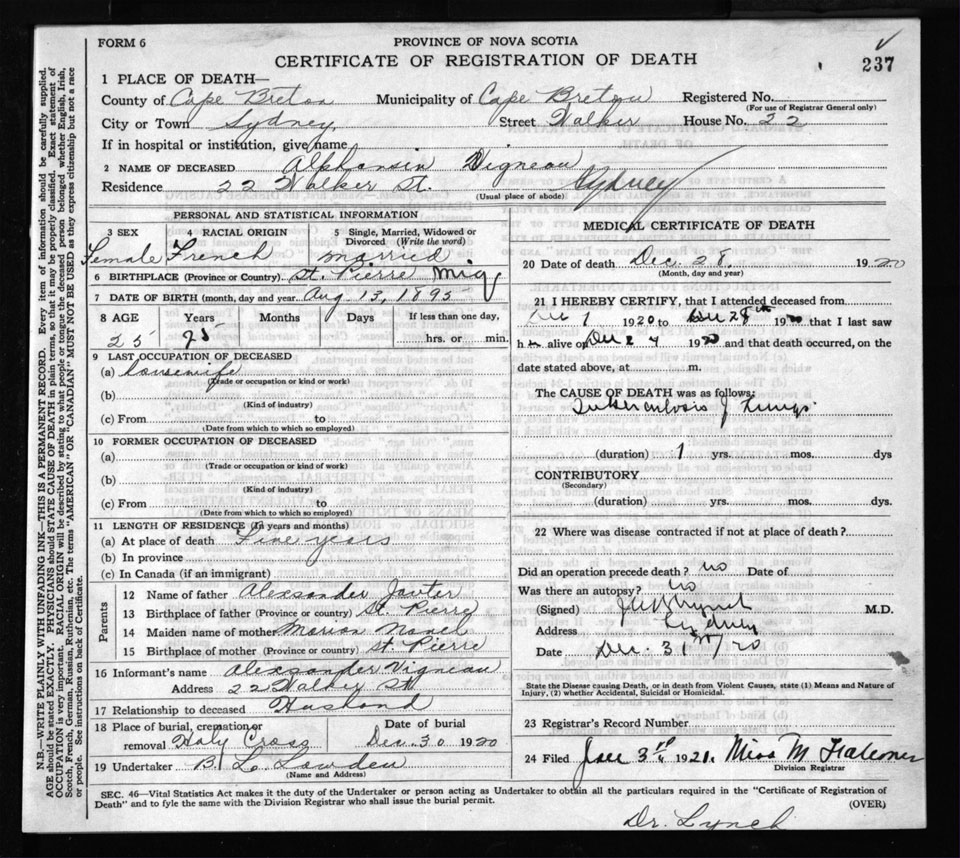 FORM 6
PROVINCE OF NOVA SCOTIA
CERTIFICATE OF REGISTRATION OF DEATH
237
1 PLACE OF DEATH—
County of Cape Breton Municipality of Cape Breton Registered No.
(For use of Registrar General only)
City or Town Sydney, Street Walker House No. 22
If in hospital or institution, give name
2 NAME OF DECEASED Alphonsin Vigneau
Residence 22 Walker St. Sydney
(Usual place of abode)
PERSONAL AND STATISTICAL INFORMATION
3 SEX 4 RACIAL ORIGIN 5 Single, Married, Widowed or Divorced (Write the word)
Female French married
6 BIRTHPLACE (Province or Country) St. Pierre Miq
7 DATE OF BIRTH (month, day and year Aug 13, 1895
8 AGE Years Months Days If less than one day,
25 25 hrs. or min.
9 LAST OCCUPATION OF DECEASED
(a) housewife
(Trade or occupation or kind or work)
(b)
(Kind of industry)
(c) From to
(Date from which to which so employed)
10 FORMER OCCUPATION OF DECEASED
(a)
(Trade or occupation or kind of work)
(b)
(Kind of industry)
(c) From to
(Date from which to which so employed)
11 LENGTH OF RESIDENCE (In years and months)
(a) At place of death Five years
(b) In province
(c) In Canada (if an immigrant)
Parents
12 Name of father Alexsander
13 Birthplace of father (Province or country) St. Pierre
14 Maiden name of mother Marion
15 Birthplace of mother (Province or country) St. Pierre
16 Informant's name Alexsander Vigneau
Address 22 Walker St
17 Relationship to deceased Husband
18 Place of burial, cremation or removal Holy Cross Date of burial Dec. 30 1920
19 Undertaker B. L. Lowden
(Name and Address)
MEDICAL CERTIFICATE OF DEATH
20 Date of death Dec. 28. 1920
(Month, day and year)
21 I HEREBY CERTIFY, that I attended deceased from
Dec 1 1920 to Dec 28th 1920 that I last saw
h alive on Dec 27 1920 and that death occurred, on the
date stated above, at m.
The CAUSE OF DEATH was as follows:
Tuberculosis of Lungs
(duration) 1 yrs. mos. dys
CONTRIBUTORY
(Secondary)
(duration) yrs. mos. dys.
22 Where was disease contracted if not at place of death?
Did an operation precede death? no Date of
Was there an autopsy? no
(Signed) Lynch M.D.
Address Sydney
Date Dec. 31st/20
State the Disease causing Death, or in death from Violent Causes, state (1) Means and Nature of
Injury, (2) whether Accidental, Suicidal or Homicidal.
23 Registrar's Record Number
24 Filed Jan 3rd 1921. Miss M Falconer
Division Registrar
SEC. 46—Vital Statistics Act makes it the duty of the Undertaker or person acting as Undertaker to obtain all the particulars required in the "Certificate of Registration of
Death" and to fyle the same with the Division Registrar who shall issue the burial permit. (OVER)
Dr. Lynch
N.B.—WRITE PLAINLY WITH UNFADING INK—THIS IS A PERMANENT RECORD. Every item of information should be carefully supplied.
AGE should be stated EXACTLY. PHYSICIANS should STATE CAUSE OF DEATH in plain terms, so that it may be properly classified. Exact statement of
OCCUPATION is very important. RACIAL ORIGIN will be described by stating to what people or tongue the deceased person belonged whether English, Irish,
Scotch, French, German, Russian, Ruthenian, etc. The terms "AMERICAN" OR "CANADIAN" MUST NOT BE USED as they express citizenship but not a race
or people. See instructions on back of Certificate.